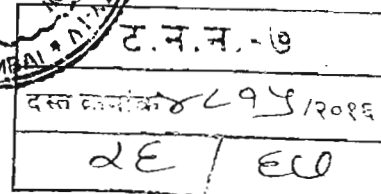 MBAI *
ट.न.न.-७
दस्त क्रमांक ४८१५/२०१६
२६ / ६७